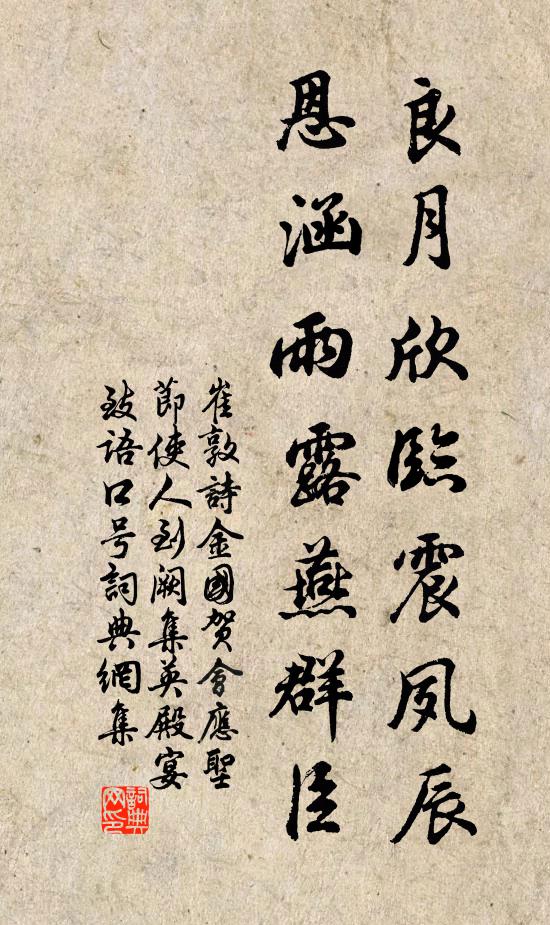 良月欣臨震夙辰
恩涵雨露燕群臣
崔敦詩金國賀會應聖
節使人到闕集英殿宴
致語口号詞典網集
詞典網印